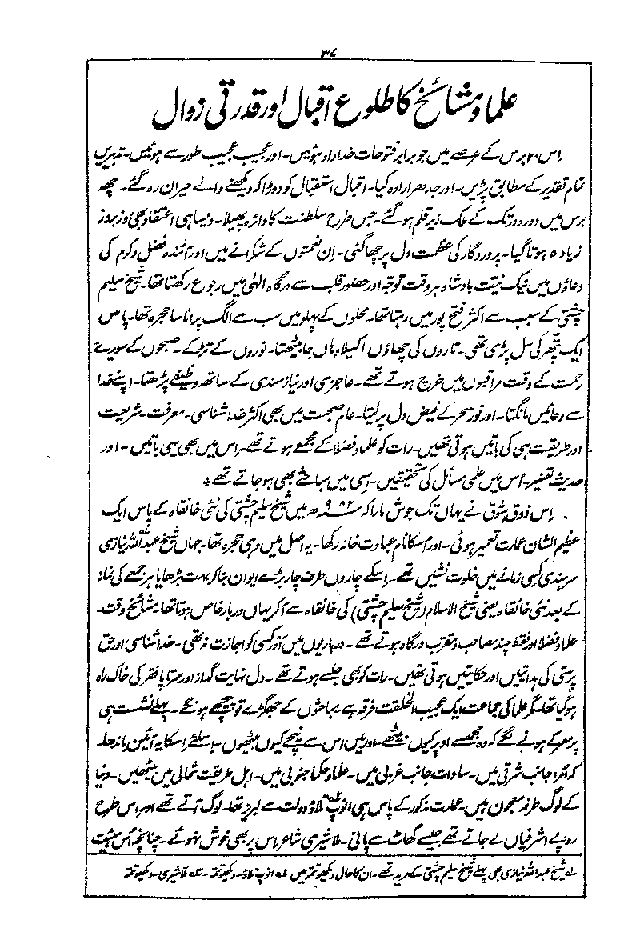 ۳۷
علما و مشائخ کا طلوعِ اقبال اور قدرتی زوال
اس ۲۰ برس کے عرصے میں جو برابر فتوحات خداداد ہوئیں۔ اور عجیب عجیب طور سے ہوئیں۔ تدبیریں
تمام تقدیر کے مطابق پڑیں۔ اور جدھر ارادہ کیا۔ اقبال استقبال کو دوڑا کہ دیکھنے والے حیران رہ گئے۔ چھ
برس میں دور دور تک کے ملک زیر قلم ہو گئے۔ جس طرح سلطنت کا دائرہ پھیلا۔ ویسا ہی اعتقاد بھی روز بروز
زیادہ ہوتا گیا۔ پروردگار کی عظمت دل پر چھا گئی۔ ان نعمتوں کے شکرانے میں اور آئندہ فضل و کرم کی
دعاؤں میں نیک نیت بادشاہ ہر وقت توجہ اور حضور قلب سے درگاہ الٰہی میں رجوع رکھتا تھا۔ شیخ سلیم
چشتی کے سبب سے اکثر فتح پور میں رہتا تھا۔ محلوں کے پہلو میں سب سے الگ پرانا سا حجرہ تھا۔ پاس
ایک پتھر کی سل پڑی تھی۔ تاروں کی چھاؤں اکیلا وہاں جا بیٹھتا۔ نوروں کے تڑکے۔ صبحوں کے سویرے
رحمت کے وقت مراقبوں میں خرچ ہوتے تھے۔ عاجزی اور نیازمندی کے ساتھ وظیفے پڑھتا۔ اپنے خدا
سے دعائیں مانگتا۔ اور نور سحر کے فیض دل پر لیتا۔ عام صحبت میں بھی اکثر خدا شناسی۔ معرفت۔ شریعت
اور طریقت ہی کی باتیں ہوتی تھیں۔ رات کو علما و فضلا کے مجمعے ہوتے تھے۔ اس میں بھی یہی باتیں۔ اور
حدیث تفسیر۔ اس میں علمی مسائل کی تحقیقیں۔ اسی میں مباحثے بھی ہو جاتے تھے ؞
اس ذوق شوق نے یہاں تک جوش مارا کہ ۹۸۲ھ میں شیخ سلیم چشتی کی نئی خانقاہ کے پاس ایک
عظیم الشان عمارت تعمیر ہوئی۔ اور اس کا نام عبادت خانہ رکھا۔ یہ اصل میں وہی حجرہ تھا۔ جہاں شیخ عبداللہ نیازی
سرہندی کسی زمانے میں خلوت نشیں تھے۔ اسکے چاروں طرف چار بڑے ایوان بنا کر بہت بڑھایا ہر جمعے کی نماز
کے بعد نئی خانقاہ یعنی شیخ الاسلام (شیخ سلیم چشتی) کی خانقاہ سے آکر یہاں دربار خاص ہوتا تھا۔ مشائخ وقت۔
علما و فضلا اور فقط چند مصاحب و مقرب درگاہ ہوتے تھے۔ درباریوں میں اَور کسی کو اجازت نہ تھی۔ خدا شناسی اور حق
پرستی کی ہدایتیں اور حکایتیں ہوتی تھیں۔ رات کو بھی جلسے ہوتے تھے۔ دل نہایت گداز اور سرتاپا فقر کی خاک راہ
ہو گیا تھا۔ مگر علما کی جماعت ایک عجیب الخلقت فرقہ ہے مباحثوں کے جھگڑے تو پیچھے ہونگے۔ پہلے نشست ہی
پر معرکے ہونے لگے کہ وہ مجھ سے اوپر کیوں بیٹھے۔ اور میں اس سے نیچے کیوں بیٹھوں اسلئے اسکا یہ آئین باندھا
کہ امرا جانب شرقی میں۔ سادات جانب غربی میں۔ علما و حکما جنوبی میں۔ اہل طریقت شمالی میں بیٹھیں۔ دنیا
کے لوگ طرفہ معجون ہیں۔ عمارت مذکور کے پاس ہی انوپ تلاؤ دولت سے لبریز تھا۔ لوگ آتے تھے اور اس طرح
روپے اشرفیاں لے جاتے تھے جیسے گھاٹ سے پانی۔ ملا شیری شاعر اس پر بھی خوش نہ ہوئے۔ چنانچہ اس
شیخ عبداللہ نیازی بھی پہلے شیخ سلیم چشتی کے مرید تھے۔ ان کا حال دیکھو تتمہ میں